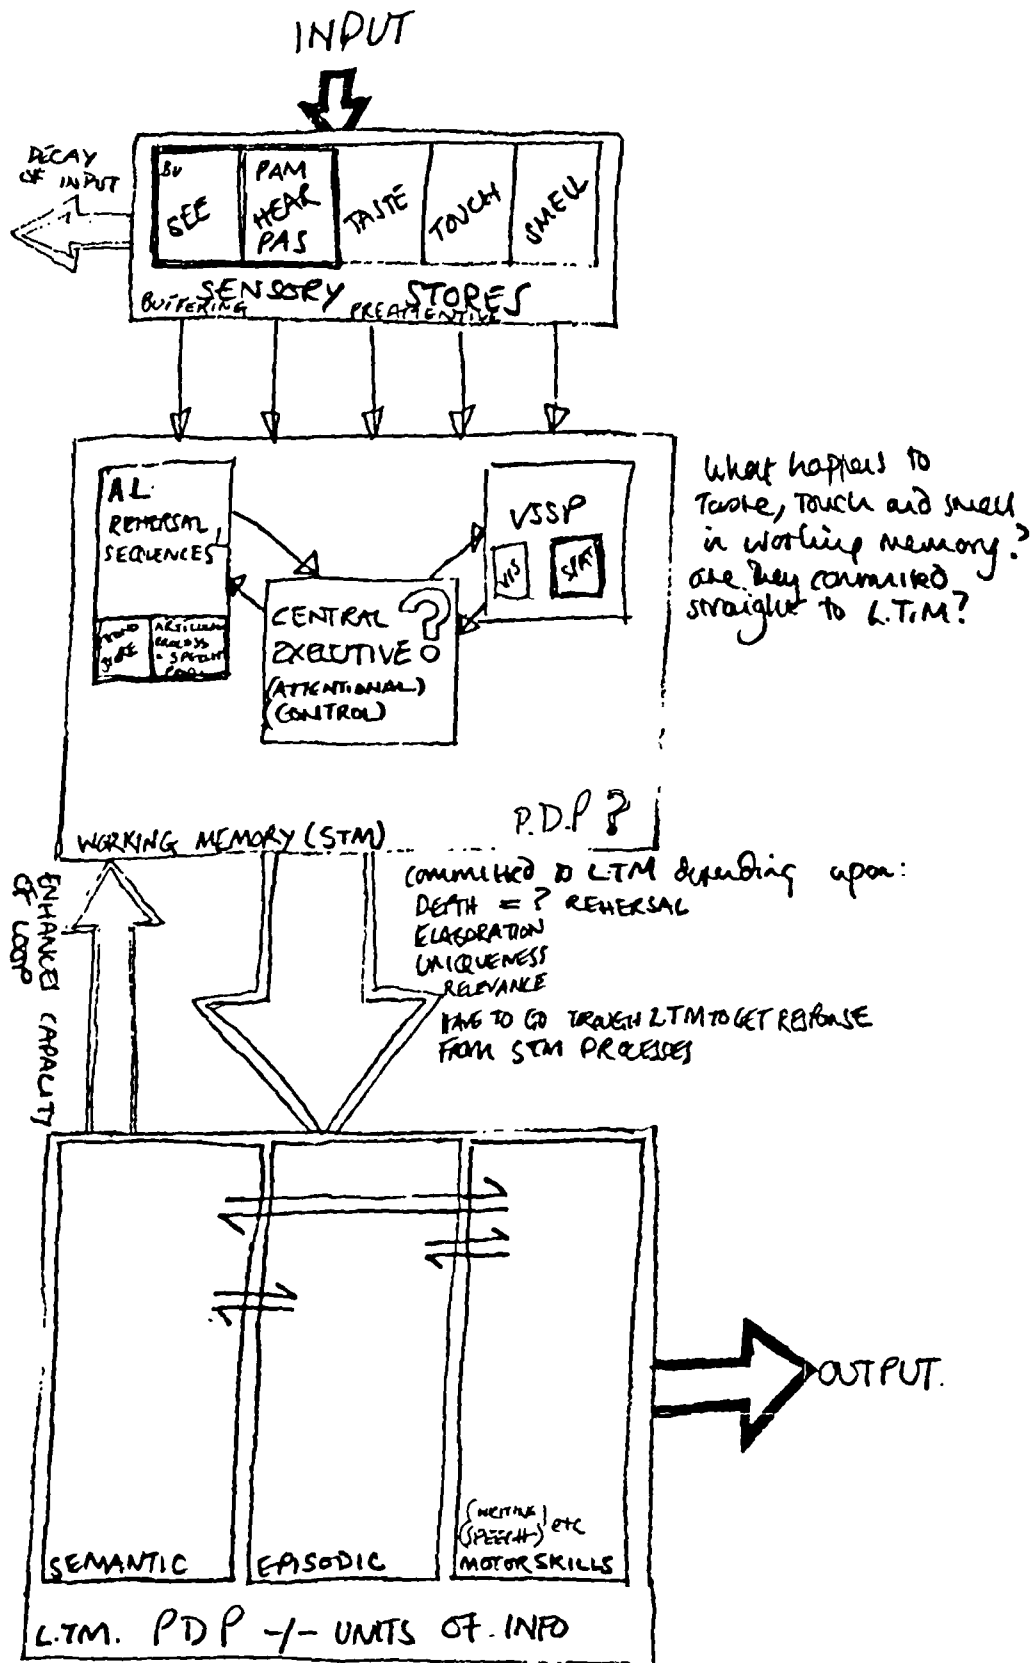 INPUT
DECAY
OF INPUT
BU
SEE
PAM
HEAR
PAS
TASTE
TOUCH
SMELL
SENSORY STORES
BUFFERING PREATTENTIVE
A.L.
REHERSAL
SEQUENCES
STORE
ARTICULAT
PROCESS
= SPEECH
CENTRAL ?
EXECUTIVE
(ATTENTIONAL)
(CONTROL)
VSSP
VIS
SPAT
What happens to
Taste, Touch and smell
in working memory?
are they commited
straight to L.T.M?
P.D.P ?
WORKING MEMORY (STM)
ENHANCES CAPACITY
OF LOOP
committed to LTM depending upon:
DEPTH = ? REHERSAL
ELABORATION
UNIQUENESS
RELEVANCE
HAVE TO GO TROUGH LTM TO GET RESPONSE
FROM STM PROCESSES
OUTPUT.
SEMANTIC
EPISODIC
(WRITING)
(SPEECH) etc
MOTOR SKILLS
L.TM. PDP -/- UNITS OF. INFO